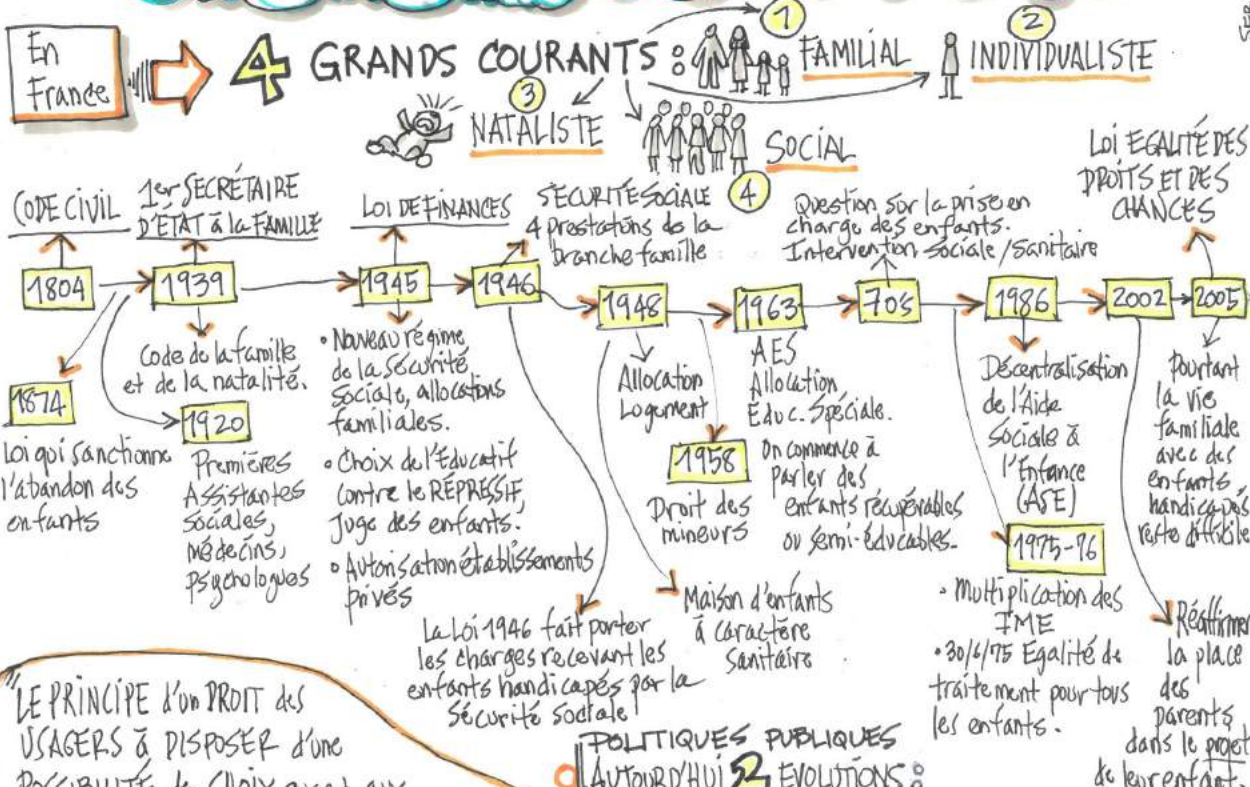 En
France
4 GRANDS COURANTS :
1
FAMILIAL
2
INDIVIDUALISTE
3
NATALISTE
4
SOCIAL
CODE CIVIL
1804
1874
Loi qui sanctionne
l'abandon des
enfants
1er SECRÉTAIRE
D'ÉTAT à la FAMILLE
1939
Code de la famille
et de la natalité.
1920
Premières
Assistantes
sociales,
médecins,
psychologues
LOI DE FINANCES
1945
• Nouveau régime
de la sécurité
sociale, allocations
familiales.
• Choix de l'Éducatif
contre le RÉPRESSIF,
juge des enfants.
• Autorisation établissements
privés
SÉCURITÉ SOCIALE
4 prestations de la
branche famille
1946
La Loi 1946 fait porter
les charges recevant les
enfants handicapés par la
Sécurité sociale
1948
Allocation
Logement
Maison d'enfants
à caractère
sanitaire
1958
Droit des
mineurs
1963
AES
Allocation
Éduc. Spéciale.
On commence à
parler des
enfants récupérables
ou semi-éducables.
Question sur la prise en
charge des enfants.
Intervention sociale/sanitaire
70s
1986
Décentralisation
de l'Aide
sociale à
l'Enfance
(ASE)
1975-76
• Multiplication des
IME
• 30/6/75 Egalité de
traitement pour tous
les enfants.
2002
Réaffirmer
la place
des
parents
dans le projet
de leur enfant.
LOI EGALITÉ DES
DROITS ET DES
CHANCES
2005
Pourtant
la vie
familiale
avec des
enfants
handicapés
reste difficile
LE PRINCIPE d'un DROIT des
USAGERS à DISPOSER d'une
POSSIBILITÉ de CHOIX
POLITIQUES PUBLIQUES
AUTOURD'HUI 52 EVOLUTIONS